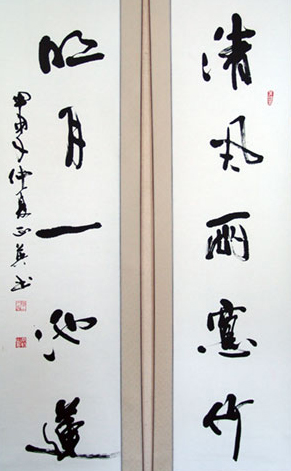 清风两窗竹
明月一池蓮
甲申年仲夏正英书